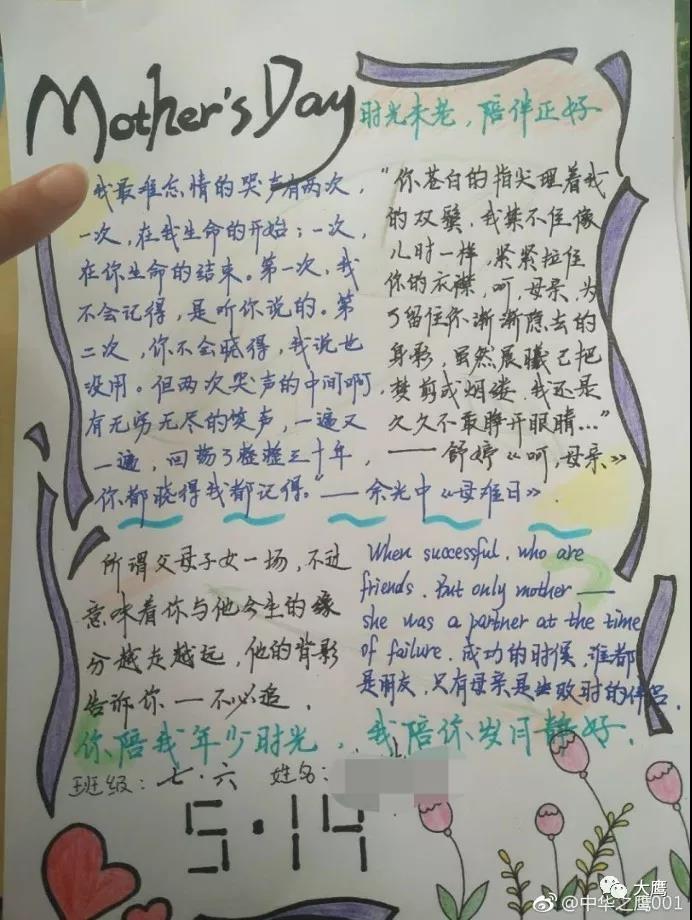 Mother's Day
时光未老，陪伴正好
我最难忘情的哭声有两次，
一次，在我生命的开始；一次，
在你生命的结束。第一次，我
不会记得，是听你说的。第
二次，你不会晓得，我说也
没用。但两次哭声的中间啊，
有无穷无尽的笑声，一遍又
一遍，回荡了整整三十年，
你都晓得我都记得。"——余光中《母难日》.
"你苍白的指尖理着我
的双鬓，我禁不住像
儿时一样，紧紧拉住
你的衣襟，呵，母亲，为
了留住你渐渐隐去的
身影，虽然晨曦已把
梦剪成烟缕，我还是
久久不敢睁开眼睛..."
——舒婷《呵，母亲》
所谓父母子女一场，不过
意味着你与他今生的缘
分越走越远，他的背影
告诉你一不必追.
When successful, who are
friends. But only mother —
she was a partner at the time
of failure. 成功的时候，谁都
是朋友，只有母亲是失败时的伴侣.
你陪我年少时光，我陪你岁月静好.
班级：七·六 姓名：
5·14
大鹰
@中华之鹰001